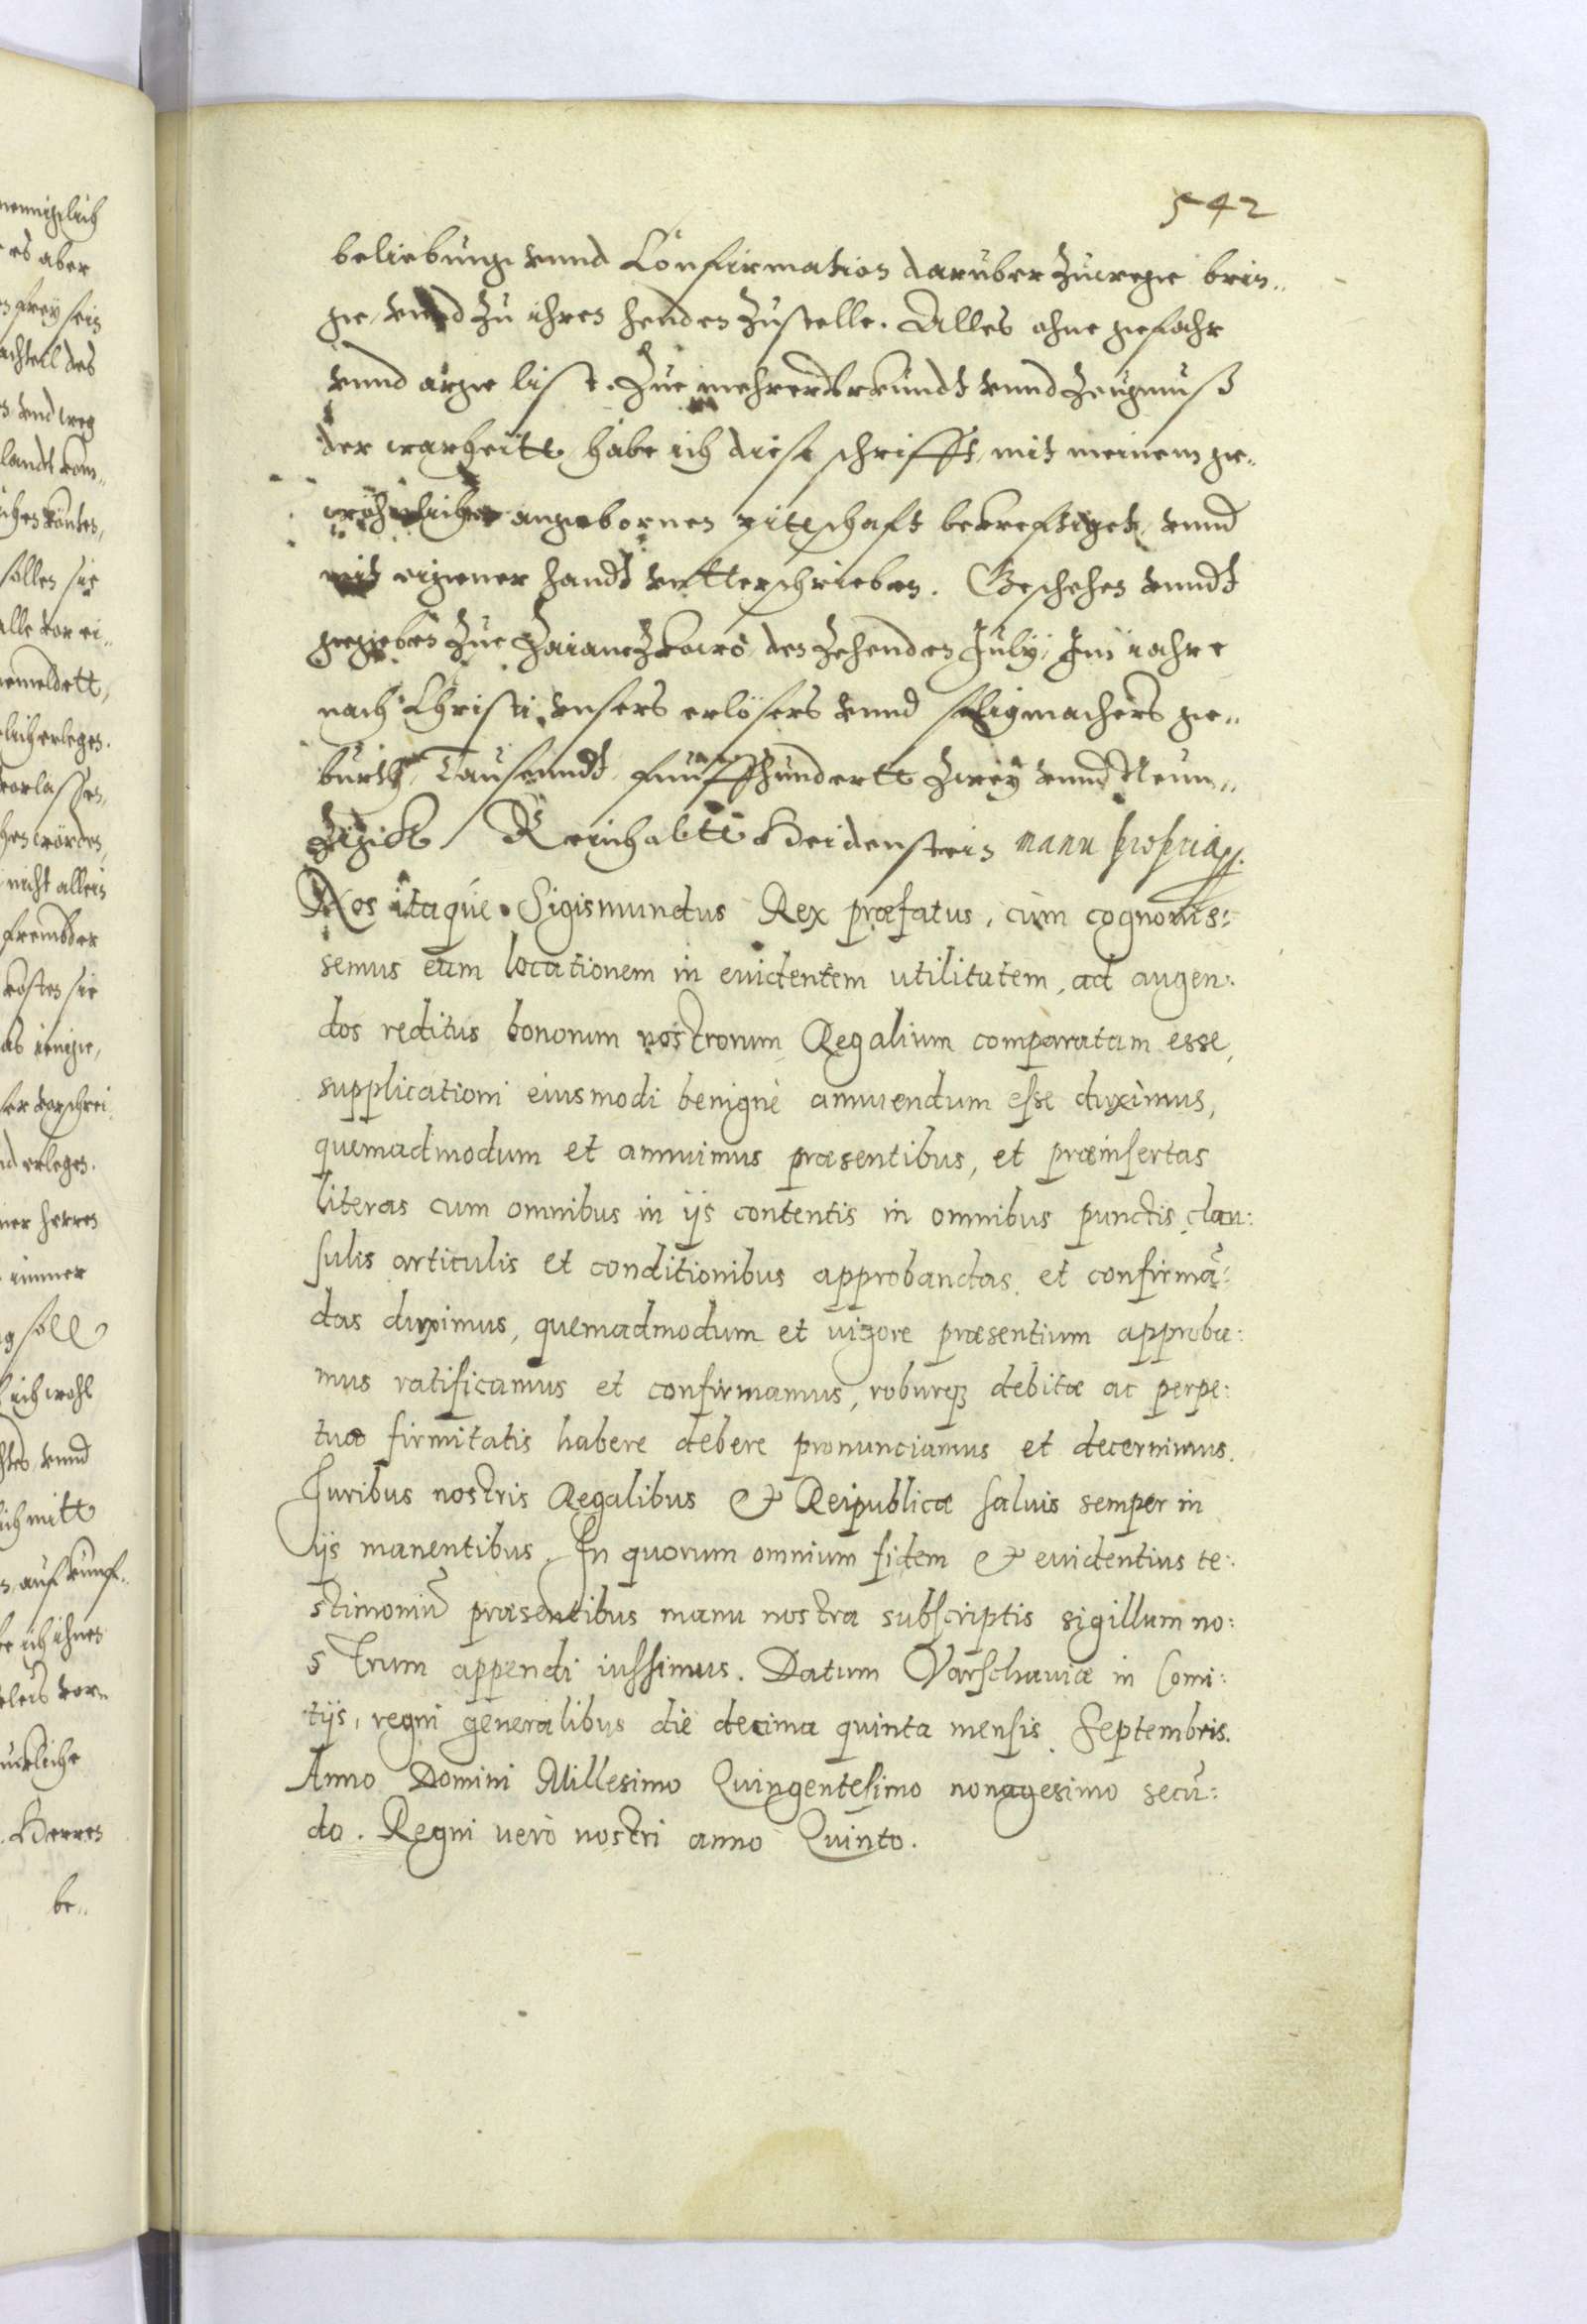 542
beliebung vnnd Confirmation daruber zuwege brin„
ge, vnnd zu ihren henden zustelle. Alles ohne gefahr
vnnd arge list. Zue mehrer vrkundt vnnd zeugnuß
der warheitt habe ich diese schrifft, mit meinem ge„
wöhnlichen angebornen pittschaft bekreftiget, vnnd
mit eigener handt vntterschrieben. Geschehen vnndt
gegeben zue den zehenden July, Im iahre
nach Christi vnsers erlösers vnnd seligmachers ge„
burth, Tausenndt funffhundertt zwey vnnd Neun„
zigk Reinholtt Heidenstein manu propria
Nos itaque Sigismundus Rex præfatus, cum cognouis:
semus eam locationem in euidentem utilitatem, ad augen:
dos reditus bonorum nostrorum Regalium comparatam esse,
supplicationi eiusmodi benignè annuendum esse duximus,
quemadmodum et annuimus præsentibus, et præinsertas
literas cum omnibus in ijs contentis in omnibus punctis, clau:
sulis articulis et conditionibus approbandas et confirmā:
das duximus, quemadmodum et uigore præsentium approba:
mus ratificamus et confirmamus, roburq3 debitæ ac perpe:
tuæ firmitatis habere debere pronunciamus et decernimus.
Iuribus nostris Regalibus & Reipublicæ saluis semper in
ijs manentibus. In quorum omnium fidem & euidentius te:
stimoniū præsentibus manu nostra subscriptis sigillum no:
strum appendi iussimus. Datum Varschauiæ in Comi:
tijs, regni generalibus die decima quinta mensis Septembris.
Anno Domini Millesimo Quingentesimo nonagesimo secū:
do. Regni uerò nostri anno Quinto.